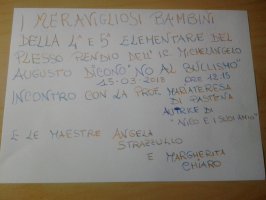 I MERAVIGLIOSI BAMBINI
DELLA 4° E 5° ELEMENTARE DEL
PLESSO RENDIO DELL'IC. MICHELANGELO
AUGUSTO DICONO "NO AL BULLISMO"
15-03-2018 ORE 12.15
INCONTRO CON LA PROF. MARIATERESA
DI PASTENA
AUTRICE DI
"NICO E I SUOI AMICI"
E LE MAESTRE ANGELA
STRAZZULLO
E MARGHERITA
CHIARO